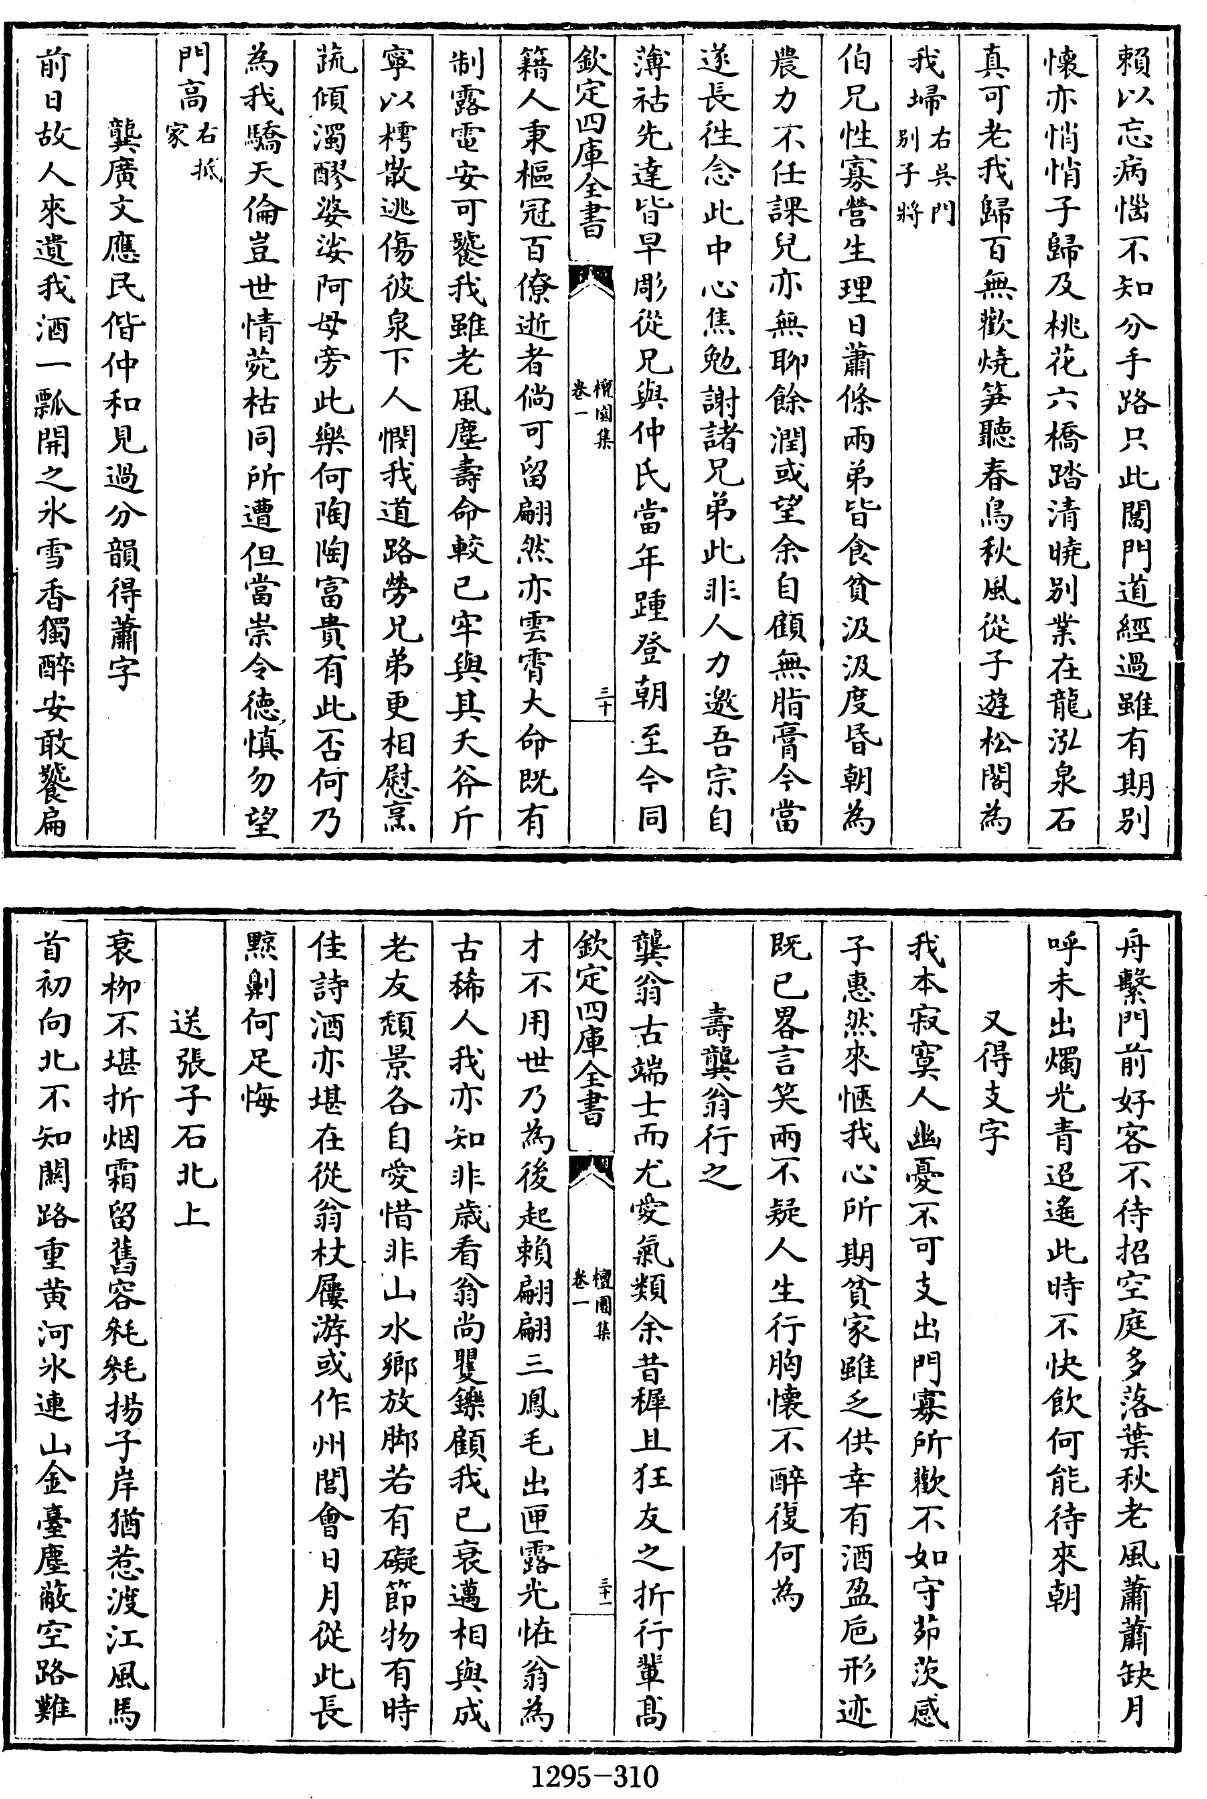 賴以忘病惱不知分手路只此閶門道經過雖有期別
懷亦悄悄子歸及桃花六橋踏清曉別業在龍泓泉石
真可老我歸百無歡燒笋聽春鳥秋風從子遊松閣為
我埽右吳門別子將
伯兄性寡營生理日蕭條兩弟皆食貧汲汲度昏朝為
農力不任課兒亦無聊餘潤或望余自顧無脂膏今當
遂長徃念此中心焦勉謝諸兄弟此非人力邀吾宗自
薄祜先達皆早彫從兄與仲氏當年踵登朝至今同
欽定四庫全書 檀園集 卷一 三十
籍人秉樞冠百僚逝者倘可留翩然亦雲霄大命既有
制露電安可饕我雖老風塵壽命較已牢與其夭斧斤
寧以樗散逃傷彼泉下人憫我道路勞兄弟更相慰烹
蔬傾濁醪婆娑阿母旁此樂何陶陶富貴有此否何乃
為我驕天倫豈世情菀枯同所遭但當崇令德慎勿望
門高右抵家
龔廣文應民偕仲和見過分韻得蕭字
前日故人來遺我酒一瓢開之氷雪香獨醉安敢饕扁
舟繫門前好客不待招空庭多落葉秋老風蕭蕭缺月
呼未出燭光青迢遙此時不快飲何能待來朝
又得支字
我本寂寞人幽憂不可支出門寡所歡不如守茆茨感
子惠然來愜我心所期貧家雖乏供幸有酒盈巵形迹
既已畧言笑兩不疑人生行胸懷不醉復何為
壽龔翁行之
龔翁古端士而尤愛氣類余昔穉且狂友之折行輩髙
欽定四庫全書 檀園集 卷一 三十一
才不用世乃為後起賴翩翩三鳳毛出匣露光恠翁為
古稀人我亦知非歲看翁尚矍鑠顧我已衰邁相與成
老友頽景各自愛惜非山水鄉放脚若有礙節物有時
佳詩酒亦堪在從翁杖屨游或作州閭會日月從此長
黥劓何足悔
送張子石北上
衰栁不堪折烟霜留舊容毿毿揚子岸猶惹渡江風馬
首初向北不知關路重黄河氷連山金臺塵蔽空路難
1295-310